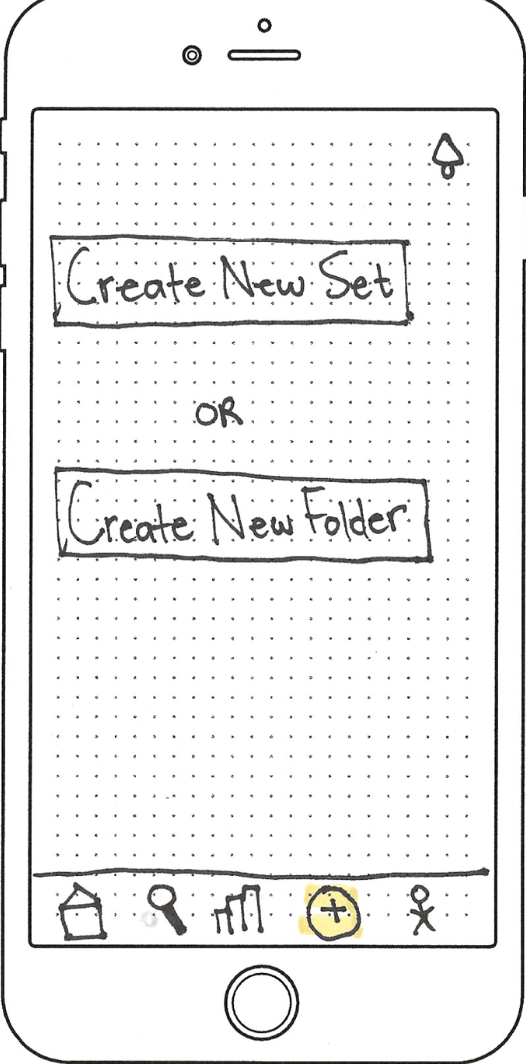 Create New Set
OR
Create New Folder